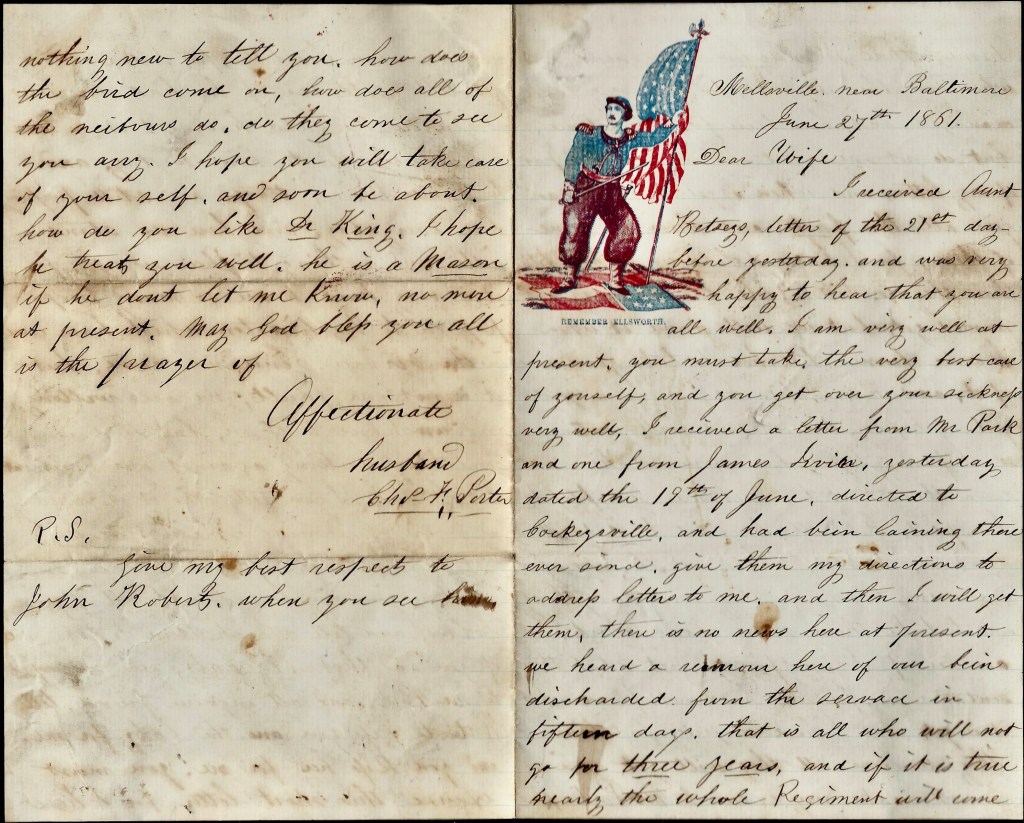 Mellsville. near Baltimore
June 27th 1861.
Dear Wife
I received Aunt
Betseys, letter of the 21st day
before yesterday. and was very
happy to hear that you are
all well. I am very well at
REMEMBER ELLSWORTH.
present. you must take, the very best care
of yourself, and you get over your sickness
very well, I received a letter from Mr Park
and one from James yesterday
dated the 19th of June. directed to
Cockeysville, and had bein laining there
ever since. give them my directions to
address letters to me. and then I will get
them, there is no news here at present.
we heard a rumour here of our bein
discharded from the servace in
fifteen days. that is all who will not
go for three years, and if it is true
nearly the whole Regiment will come
nothing new to till you. how does
the bird come on, how does all of
the neibours do. do they come to see
you any. I hope you will take care
of your self. and soon be about.
how do you like Dr King. I hope
he treats you well. he is a Mason
if he dont let me know, no more
at present. May God bless you all
is the prayer of
Affectionate
husband
Chas F. Porter
P.S.
Give my best respects to
John Roberts. when you see